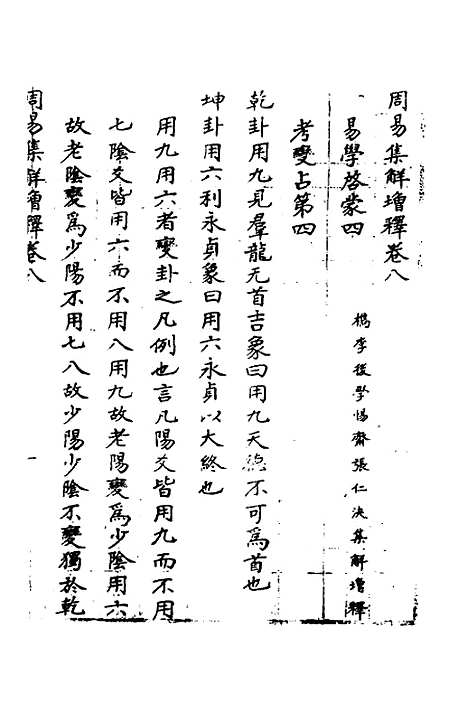 周易集解增釋卷八
易學啓蒙四
檇李後學惕齋張仁浹集解增釋
考變占第四
乾卦用九見羣龍无首吉象曰用九天德不可爲首也
坤卦用六利永貞象曰用六永貞以大終也
用九用六者變卦之凡例也言凡陽爻皆用九而不用
七陰爻皆用六而不用八用九故老陽變爲少陰用六
故老陰變爲少陽不用七八故少陽少陰不變獨於乾
周易集解增釋卷八
一